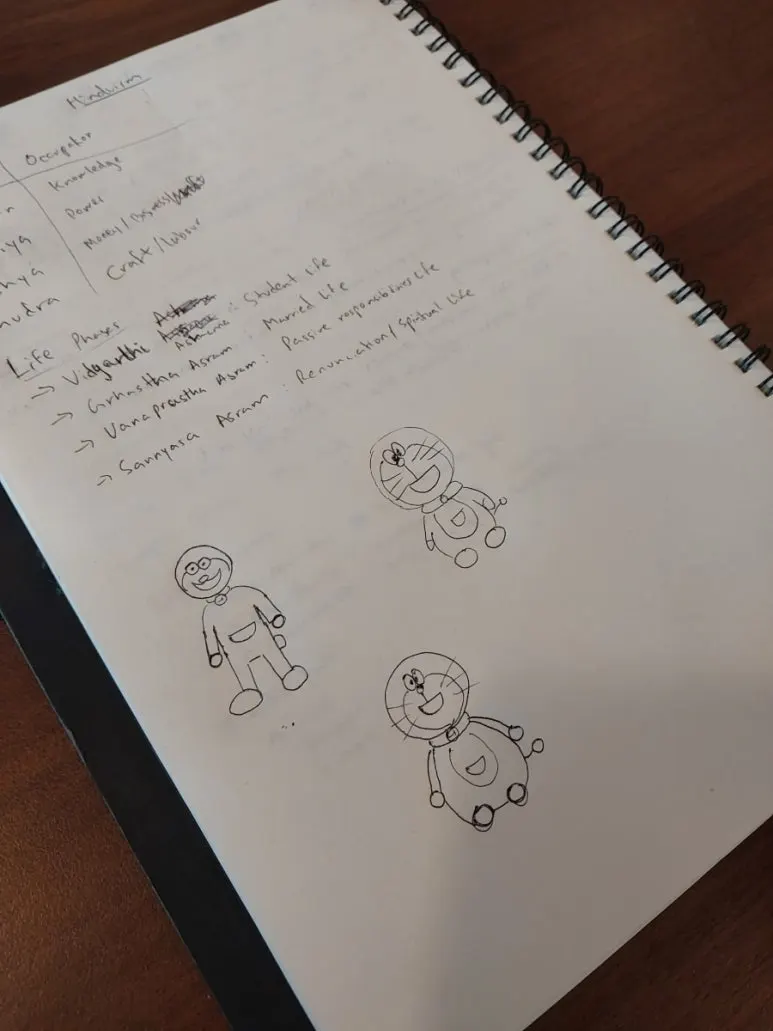 Hinduism
Occupation
Knowledge
Power
iya Money/Business/
hya Craft/Labour
hudra
Life Phases
→ Vidyarthi Ashrama : Student Life
→ Grhastha Asram : Married Life
→ Vanaprastha Asram : Passive responsibilities life
→ Sannyasa Asram : Renunciation/Spiritual Life